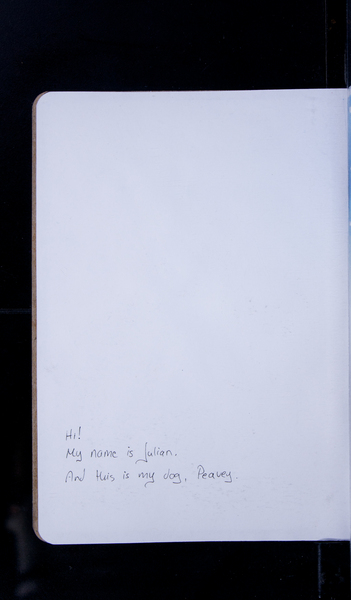 Hi!
My name is Julian.
And this is my dog, Peavey.